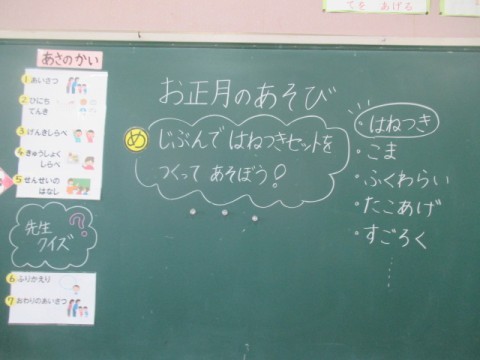 てを あげる
あさのかい
1 あいさつ
2 ひにち
てんき
3 げんきしらべ
4 きゅうしょく
しらべ
5 せんせいの
はなし
先生
クイズ ?
6 ふりかえり
7 おわりのあいさつ
お正月のあそび
め じぶんで はねつきセットを
つくって あそぼう!
・はねつき
・こま
・ふくわらい
・たこあげ
・すごろく